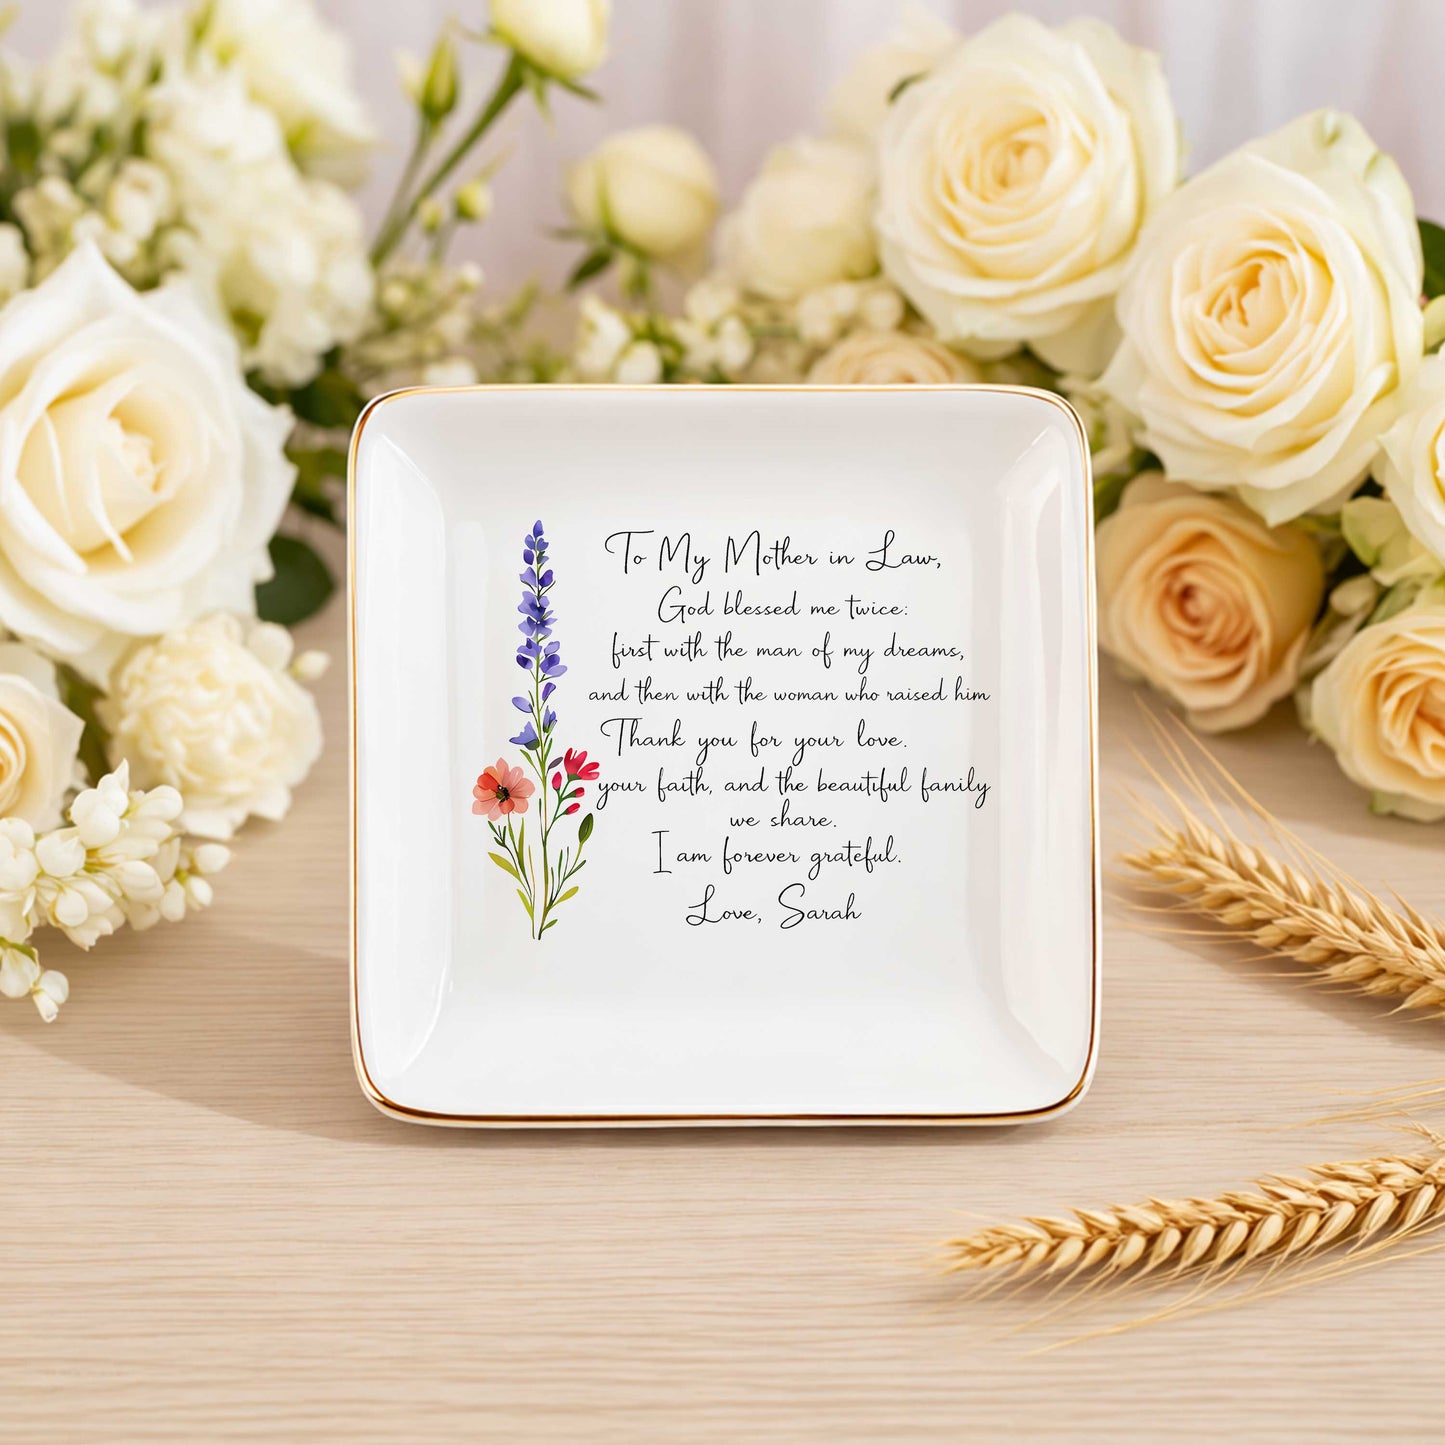 To My Mother in Law,
God blessed me twice:
first with the man of my dreams,
and then with the woman who raised him
Thank you for your love.
your faith, and the beautiful fanily
we share.
I am forever grateful.
Love, Sarah